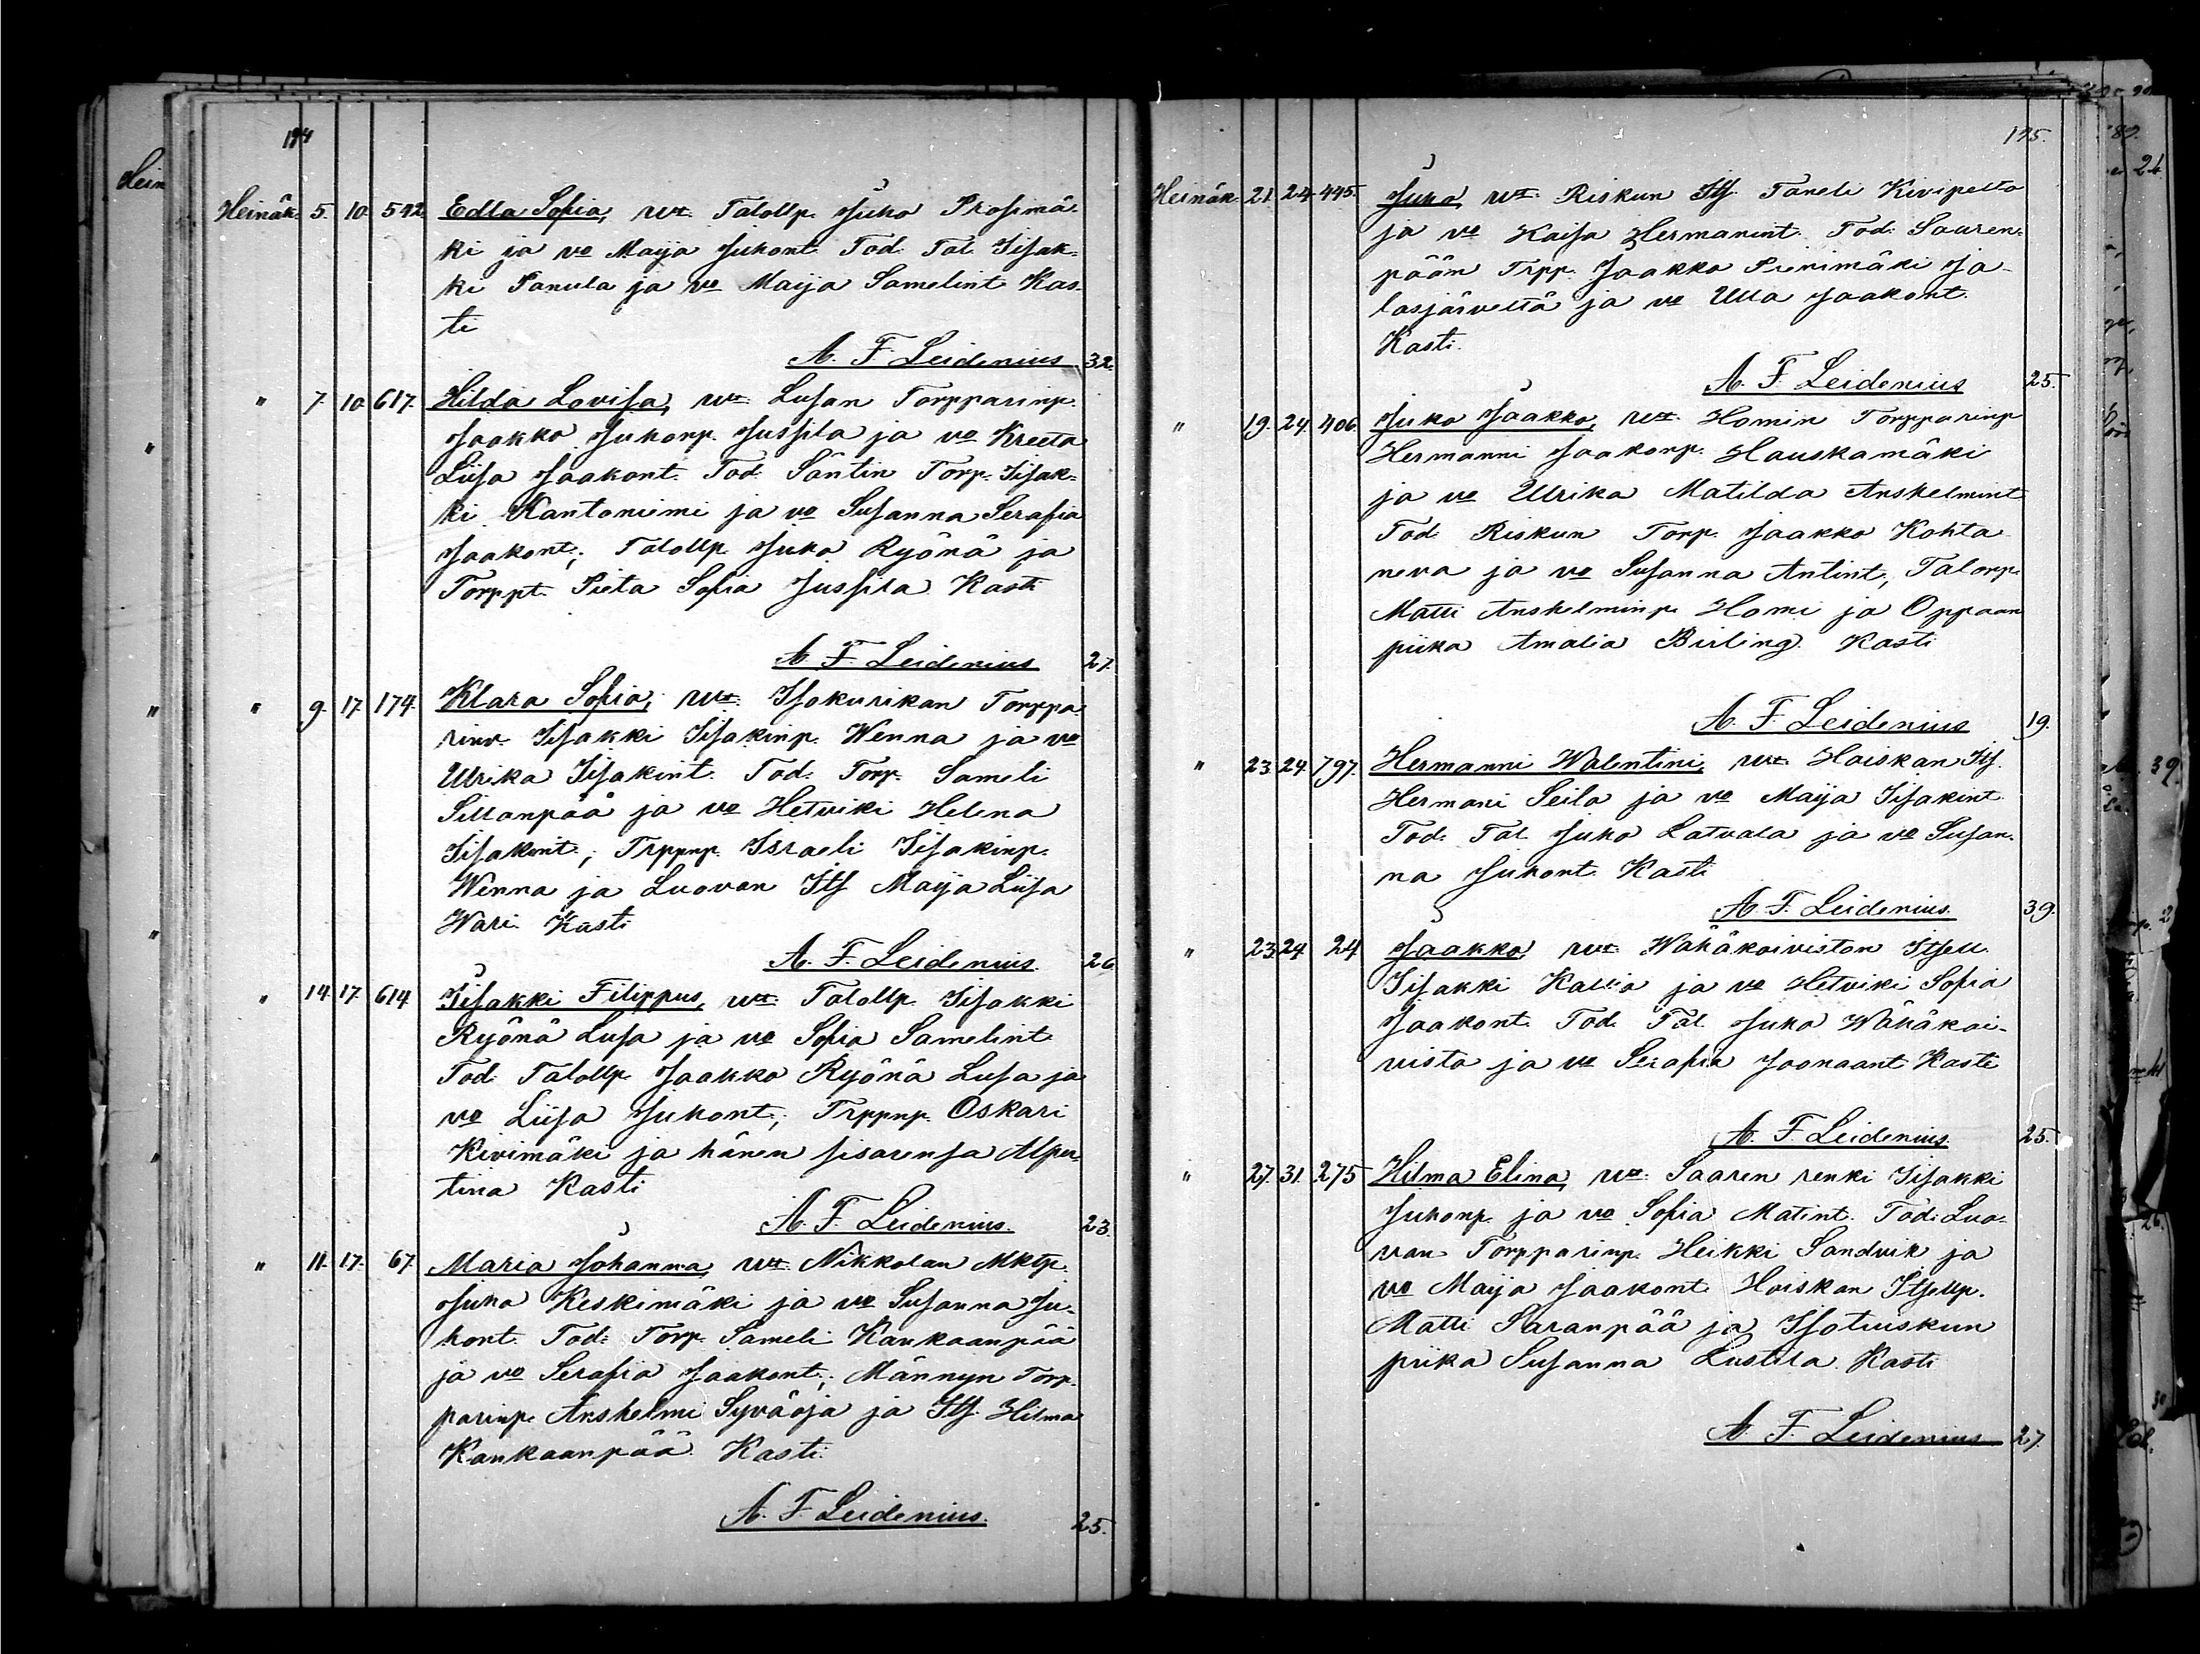 194
Heinäk. 5. 10. 542. Edla Sofia, vt. Talollp. Juho Prosimä-
ki ja vo Maija Juhont. Tod. Tal. Iisak-
ki Panula ja vo Maija Samelint. Kas-
ti
A. F. Leidenius 32.
" 7. 10. 617. Hilda Lovisa, vt. Lusan Torpparinp.
Jaakko Juhonp. Jussila ja vo Kreeta
Liisa Jaakont. Tod. Säntin Torp. Iisak-
ki Kantoniemi ja vo Susanna Serafia
Jaakont.; Talollp. Juho Ryönä ja
Torppt. Pieta Sofia Jussila. Kasti
A. F. Leidenius 27.
" 9. 17. 174. Klara Sofia, vt. Isokurikan Torppa-
rinv. Iisakki Iisakinp. Wenna ja vo
Ulrika Iisakint. Tod. Torp. Sameli
Sillanpää ja vo Hetviki Helena
Iisakint.; Trppnp. Israeli Iisakinp.
Wenna ja Luovan Its. Maija Liisa
Wari. Kasti
A. F. Leidenius. 26
" 14. 17. 614. Iisakki Filippus, vt. Talollp. Iisakki
Ryönä Lusa ja vo Sofia Samelint.
Tod. Talollp. Jaakko Ryönä Lusa ja
vo Liisa Juhont.; Trppnp. Oskari
Kivimäki ja hänen sisarensa Alper-
tina Kasti
A. F. Leidenius. 23.
" 11. 17. 67. Maria Johanna, vt. Nikkolan Mktp.
Juha Keskimäki ja vo Susanna Ju-
hont. Tod. Torp. Sameli Kankaanpää
ja vo Serafia Jaakont.; Männyn Torp-
parinp. Anshelmi Syväoja ja Its. Hilma
Kankaanpää. Kasti.
A. F. Leidenius. 25.
195.
Heinäk. 21. 24. 445. Juho, vt. Riskun Its. Taneli Kivipelto
ja vo Kaisa Hermanint. Tod. Sauren-
pään Trpp. Jaakko Pienimäki Ja-
lasjäveltä ja vo Ulla Jaakont.
Kasti.
A. F. Leidenius 25.
" 19. 24. 406. Juho Jaakko, vt. Homin Torpparinp.
Hermanni Jaakonp. Hauskamäki
ja vo Ulrika Matilda Anshelmint.
Tod. Riskun Torp. Jaakko Kohta-
neva ja vo Susanna Antint., Talonp.
Matti Anshelminp. Homi ja Oppaan
piika Amalia Birling. Kasti
A. F. Leidenius 19.
" 23. 24. 797. Hermanni Walentini, vt. Haiskan Its.
Hermani Seila ja vo Maija Iisakint.
Tod. Tal. Juho Latvala ja vo Susan-
na Juhont. Kasti
A. F. Leidenius. 39.
" 23. 24. 24 Jaakko vt. Wähäkoiviston Itsell.
Iisakki Kallio ja vo Hetviki Sofia
Jaakont. Tod. Tal. Juho Wähäkoi-
visto ja vo Serafia Joonaant Kasti
A. F. Leidenius. 25.
" 27. 31. 275 Hilma Elina, vt. Saaren renki Iisakki
Juhonp. ja vo Sofia Matint. Tod. Luo-
van Torpparinp. Heikki Sandvik ja
vo Maija Jaakont. Haiskan Itsellp.
Matti Saranpää ja Isotuiskun
piika Susanna Lustila. Kasti
A. F. Leidenius 27.